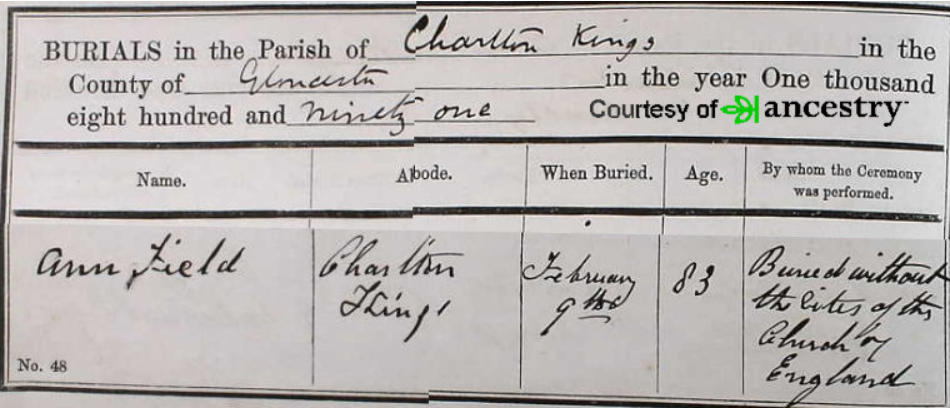 BURIALS in the Parish of Charlton Kings in the
County of Gloucester in the year One thousand
eight hundred and ninety one Courtesy of ancestry
Name. Abode. When Buried. Age. By whom the Ceremony was performed.
Ann Field Charlton Kings February 9th 83 Buried without
the Rites of the
Church of
England
No. 48